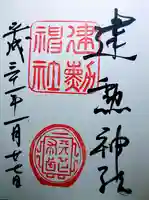 建勲神社
建勲
神社
平成三十一年一月廿七日